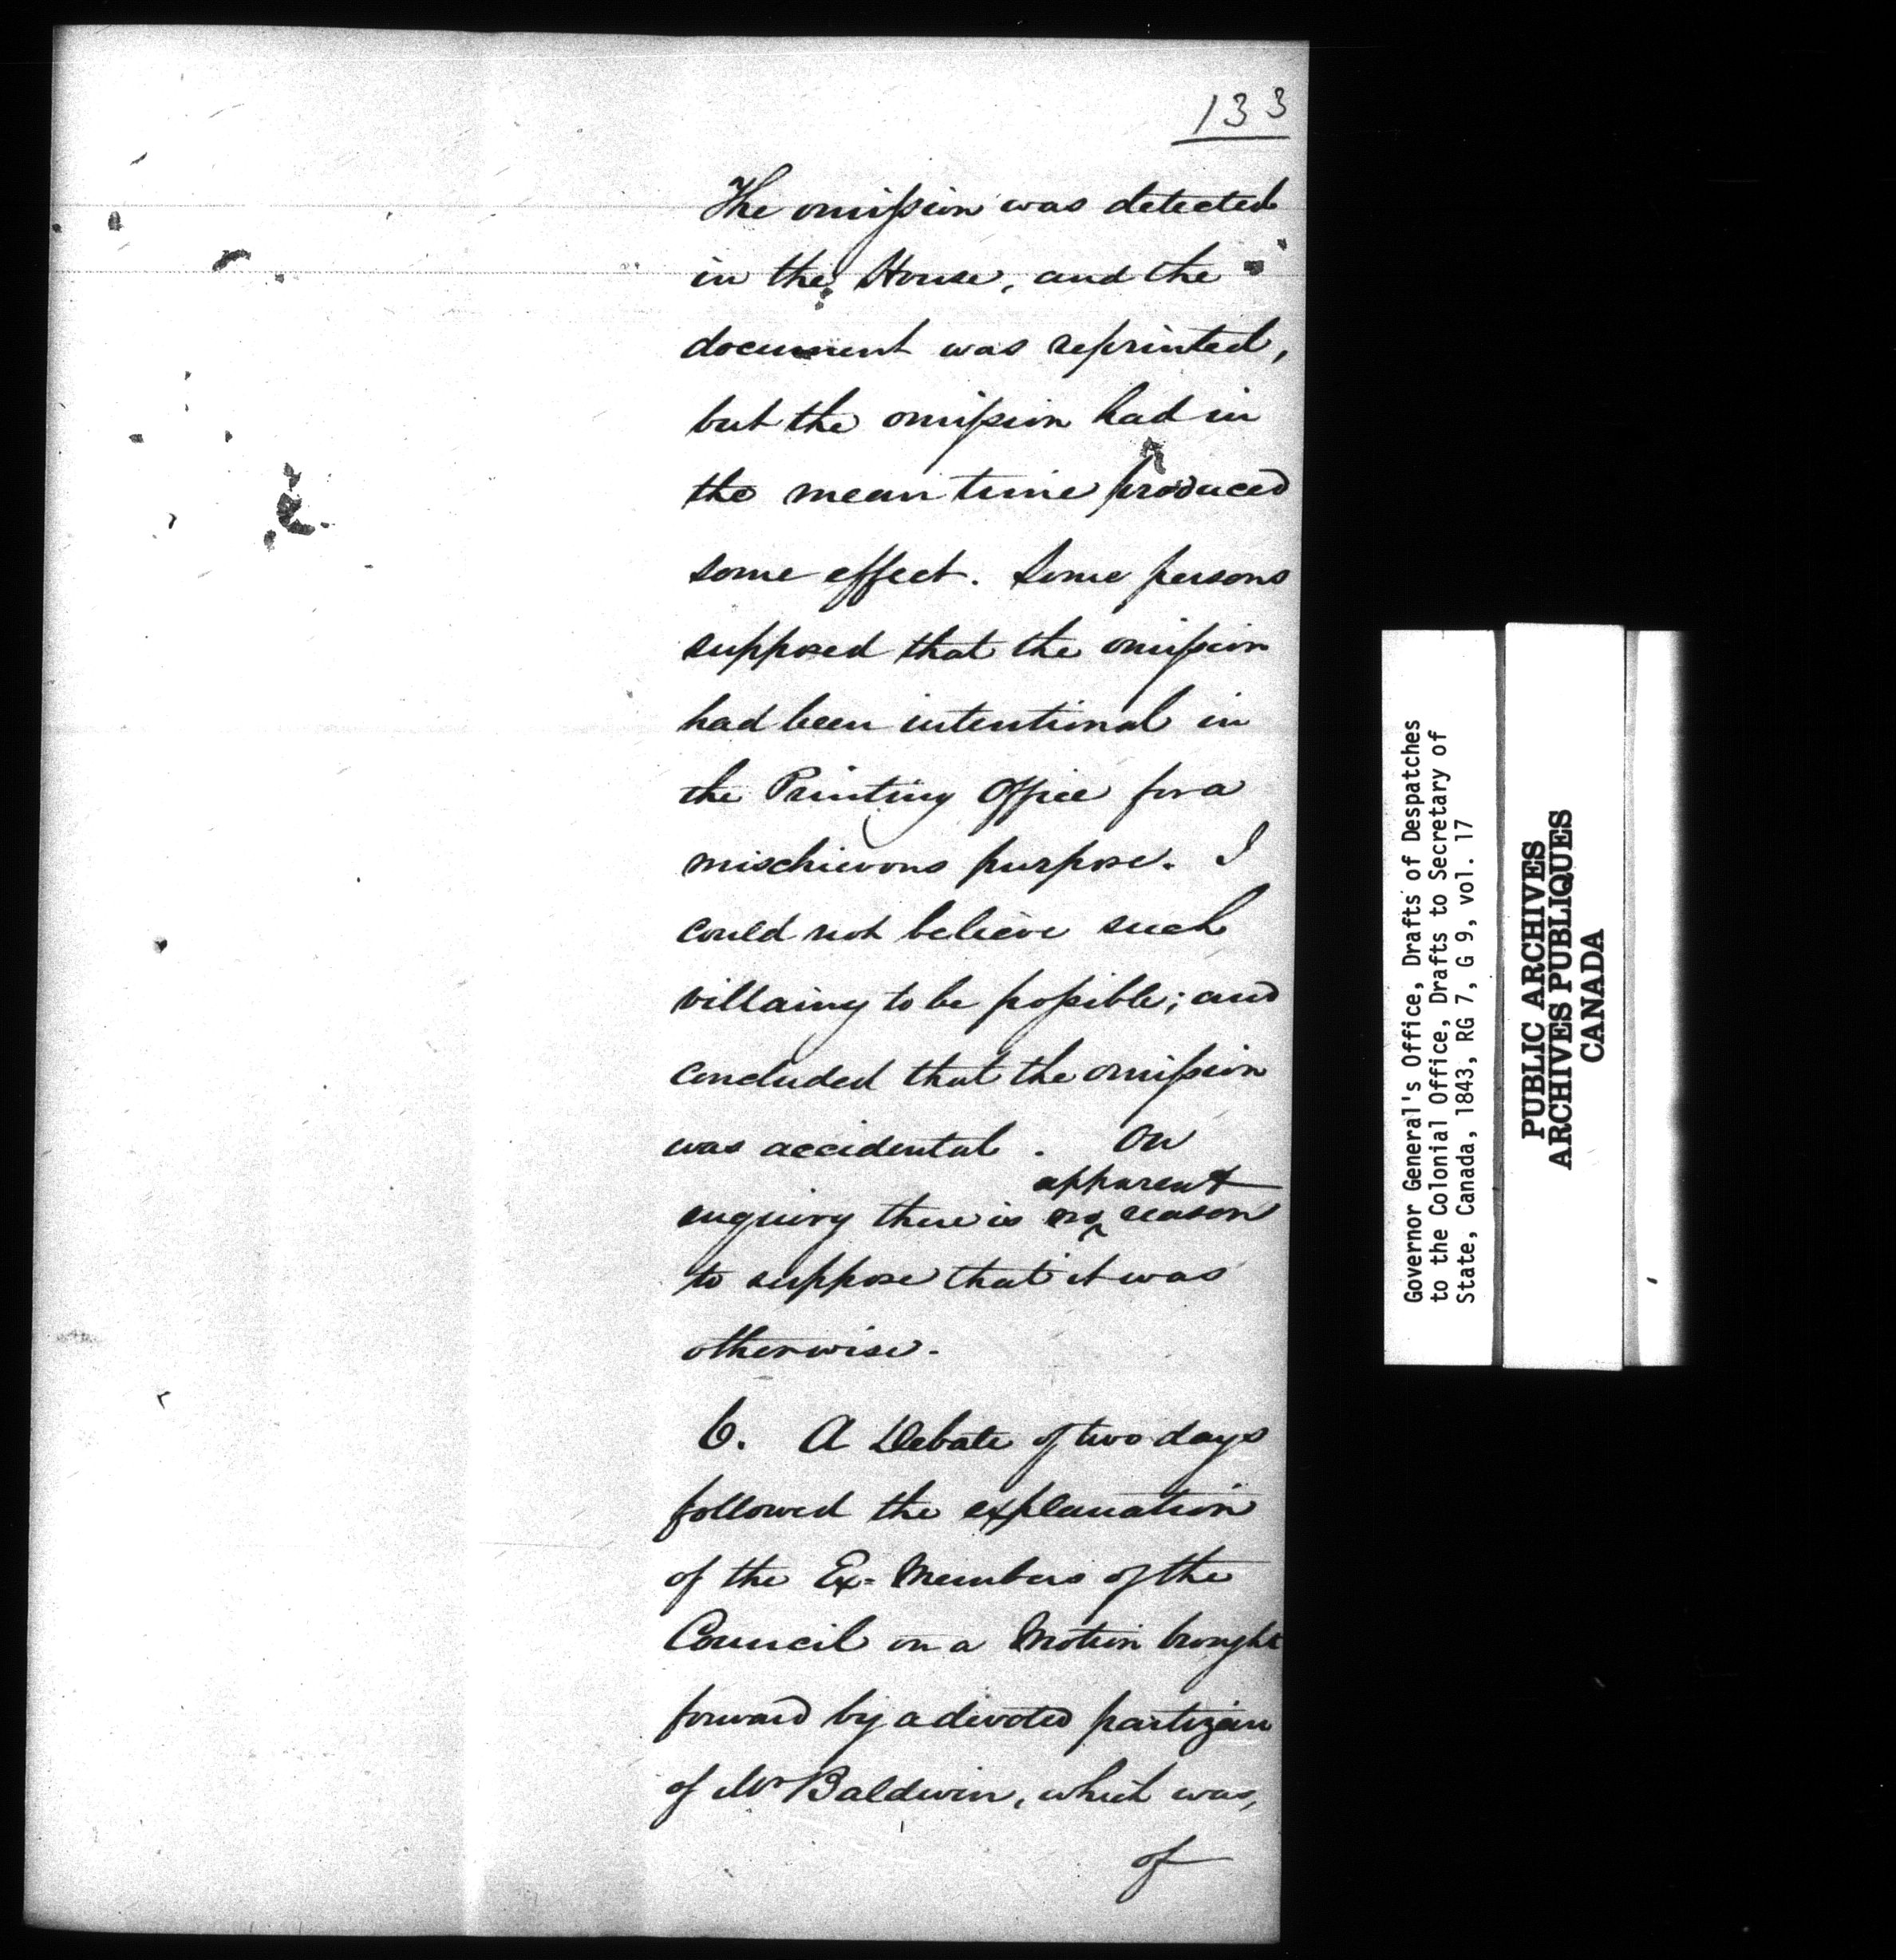 133
The omission was detected
in the House, and the
document was reprinted,
but the omission had in
the mean time produced
some effect. Some persons
supposed that the omission
had been intentional in
the Printing Office for a
mischievous purpose. I
could not believe such
villainy to be possible; and
concluded that the omission
was accidental. On
apparent
enquiry there is no reason
to suppose that it was
otherwise.
6. A Debate of two days
followed the explanation
of the Ex-Members of the
Council on a Motion brought
forward by a devoted partizan
of Mr Baldwin, which was,
of
Governor General's Office, Drafts of Despatches
to the Colonial Office, Drafts to Secretary of
State, Canada, 1843, RG 7, G 9, vol. 17
PUBLIC ARCHIVES
ARCHIVES PUBLIQUES
CANADA